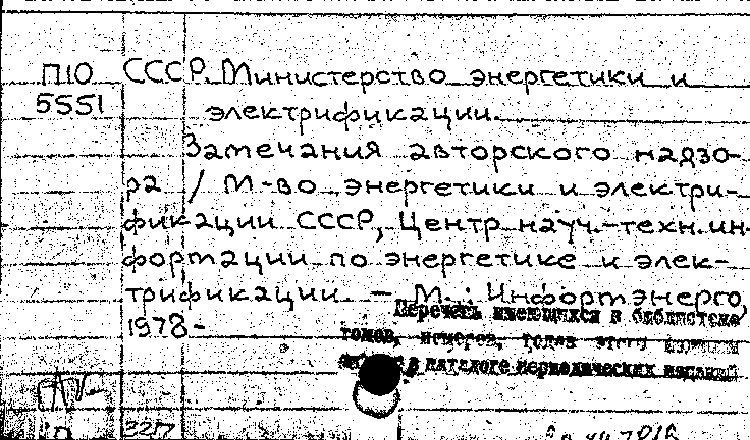 П10 СССР. Министерство энергетики и
5551 электрификации.
Замечания авторского надзо-
ра / М-во энергетики и электри-
фикации СССР, Центр науч.-техн. ин-
формации по энергетике и элек-
трификации. – М.: Информэнерго,
1978-
Перечень имеющихся в библиотеке
томов, номеров, годов этого издания
в каталоге периодических изданий